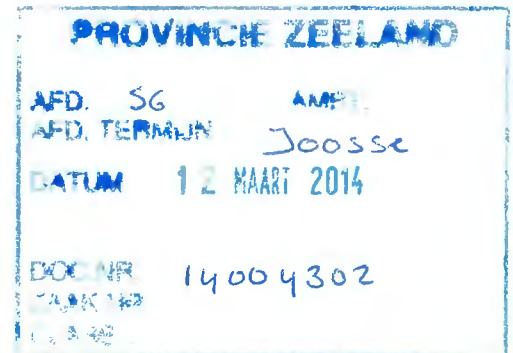 PROVINCIE ZEELAND
AFD. SG AMBT.
AFD. TERMIJN Joosse
DATUM 12 MAART 2014
DOC.NR. 14004302
ZAAK NR.